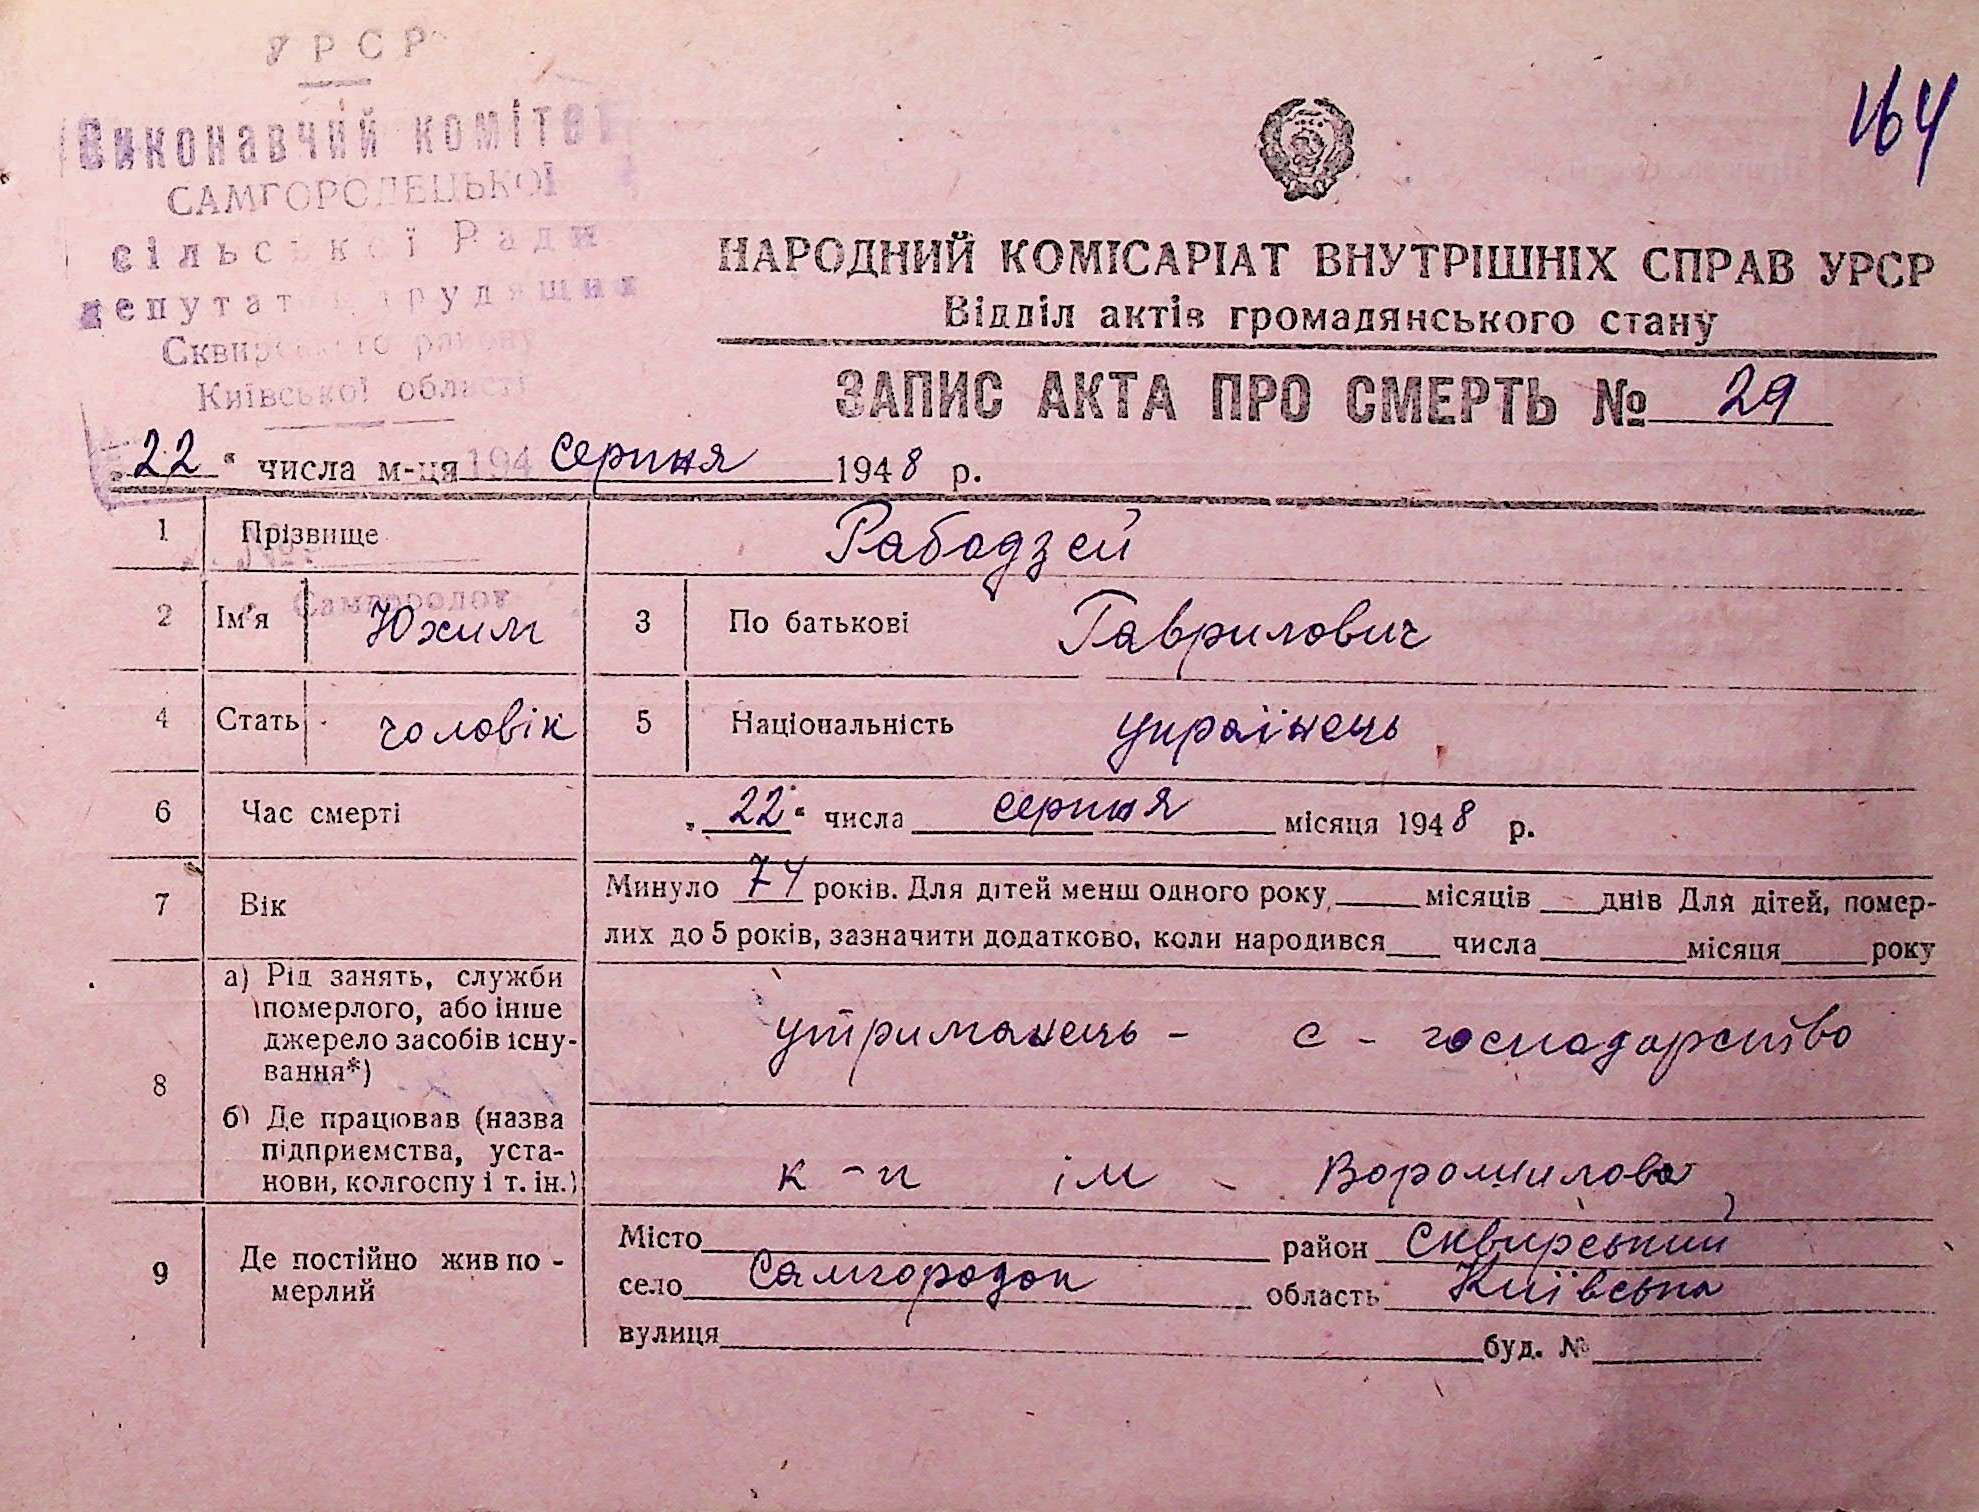 УРСР
Виконавчий комітет
САМГОРОДЕЦЬКОЇ
сільської Ради
депутатів трудящих
Сквирського району
Київської області
164
НАРОДНИЙ КОМІСАРІАТ ВНУТРІШНІХ СПРАВ УРСР
Відділ актів громадянського стану
ЗАПИС АКТА ПРО СМЕРТЬ № 29
„22“ числа м-ця серпня 1948 р.
194
1 Прізвище Рабадзей
№
Самгородок
2 Ім'я Юхим 3 По батькові Гаврилович
4 Стать чоловік 5 Національність українець
6 Час смерті „22“ числа серпня місяця 1948 р.
7 Вік Минуло 74 років. Для дітей менш одного року, місяців днів Для дітей, помер-
лих до 5 років, зазначити додатково, коли народився числа місяця року
8 а) Рід занять, служби
померлого, або інше
джерело засобів існу-
вання*)
утриманець - с - господарство
б) Де працював (назва
підприємства, уста-
нови, колгоспу і т. ін.)
к-п ім - Ворошилова
9 Де постійно жив по-
мерлий
Місто район Сквирський
село Самгородок область Київська
вулиця буд. №